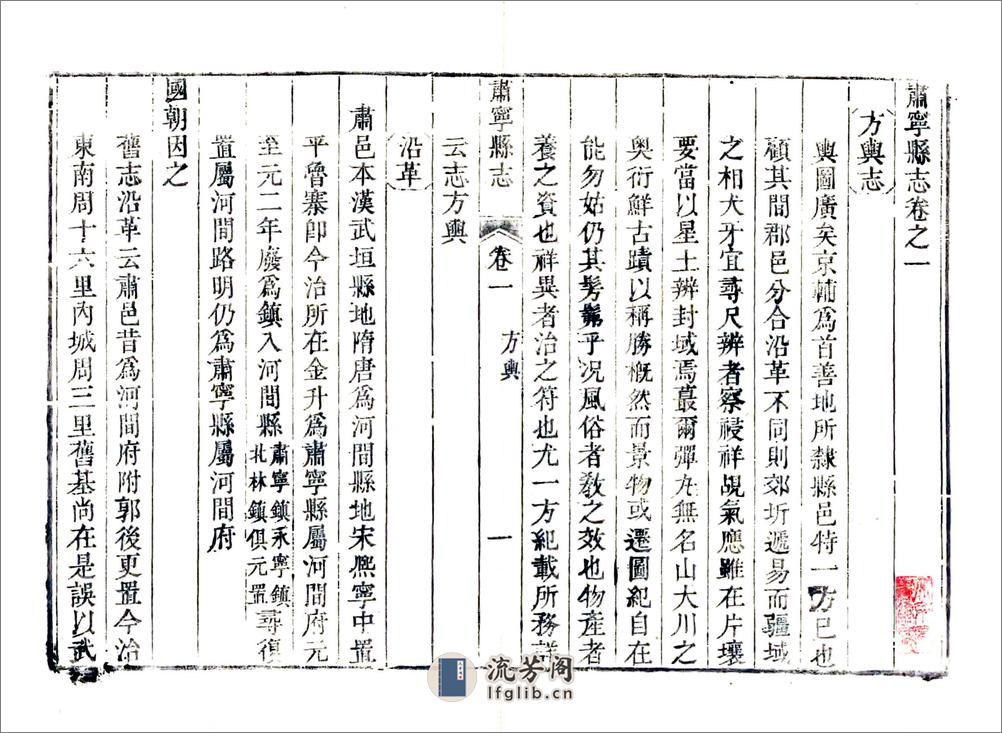 肅寧縣志卷之一
方輿志
輿圖廣矣京輔爲首善地所隸縣邑特一方已也
顧其間郡邑分合沿革不同則郊圻遞易而疆域
之相犬牙宜尋尺辨者察祲祥覘氣應雖在片壤
要當以星土辨封域焉蕞爾彈丸無名山大川之
奥衍鮮古蹟以稱勝概然而景物或遷圖紀自在
能勿姑仍其髣髴乎况風俗者敎之效也物産者
養之資也祥異者治之符也尤一方紀載所務詳
肅寧縣志
卷一
方輿
一
云志方輿
沿革
肅邑本漢武垣縣地隋唐爲河間縣地宋熙寧中置
平魯寨卽今治所在金升爲肅寧縣屬河間府元
至元二年廢爲鎮入河間縣肅寧鎮永寧鎮北林鎮俱元置尋復
置屬河間路明仍爲肅寧縣屬河間府
國朝因之
舊志沿革云肅邑昔爲河間府附郭後更置今治
東南周十六里內城周三里舊基尚在是誤以武
流芳阁
lfglib.cn